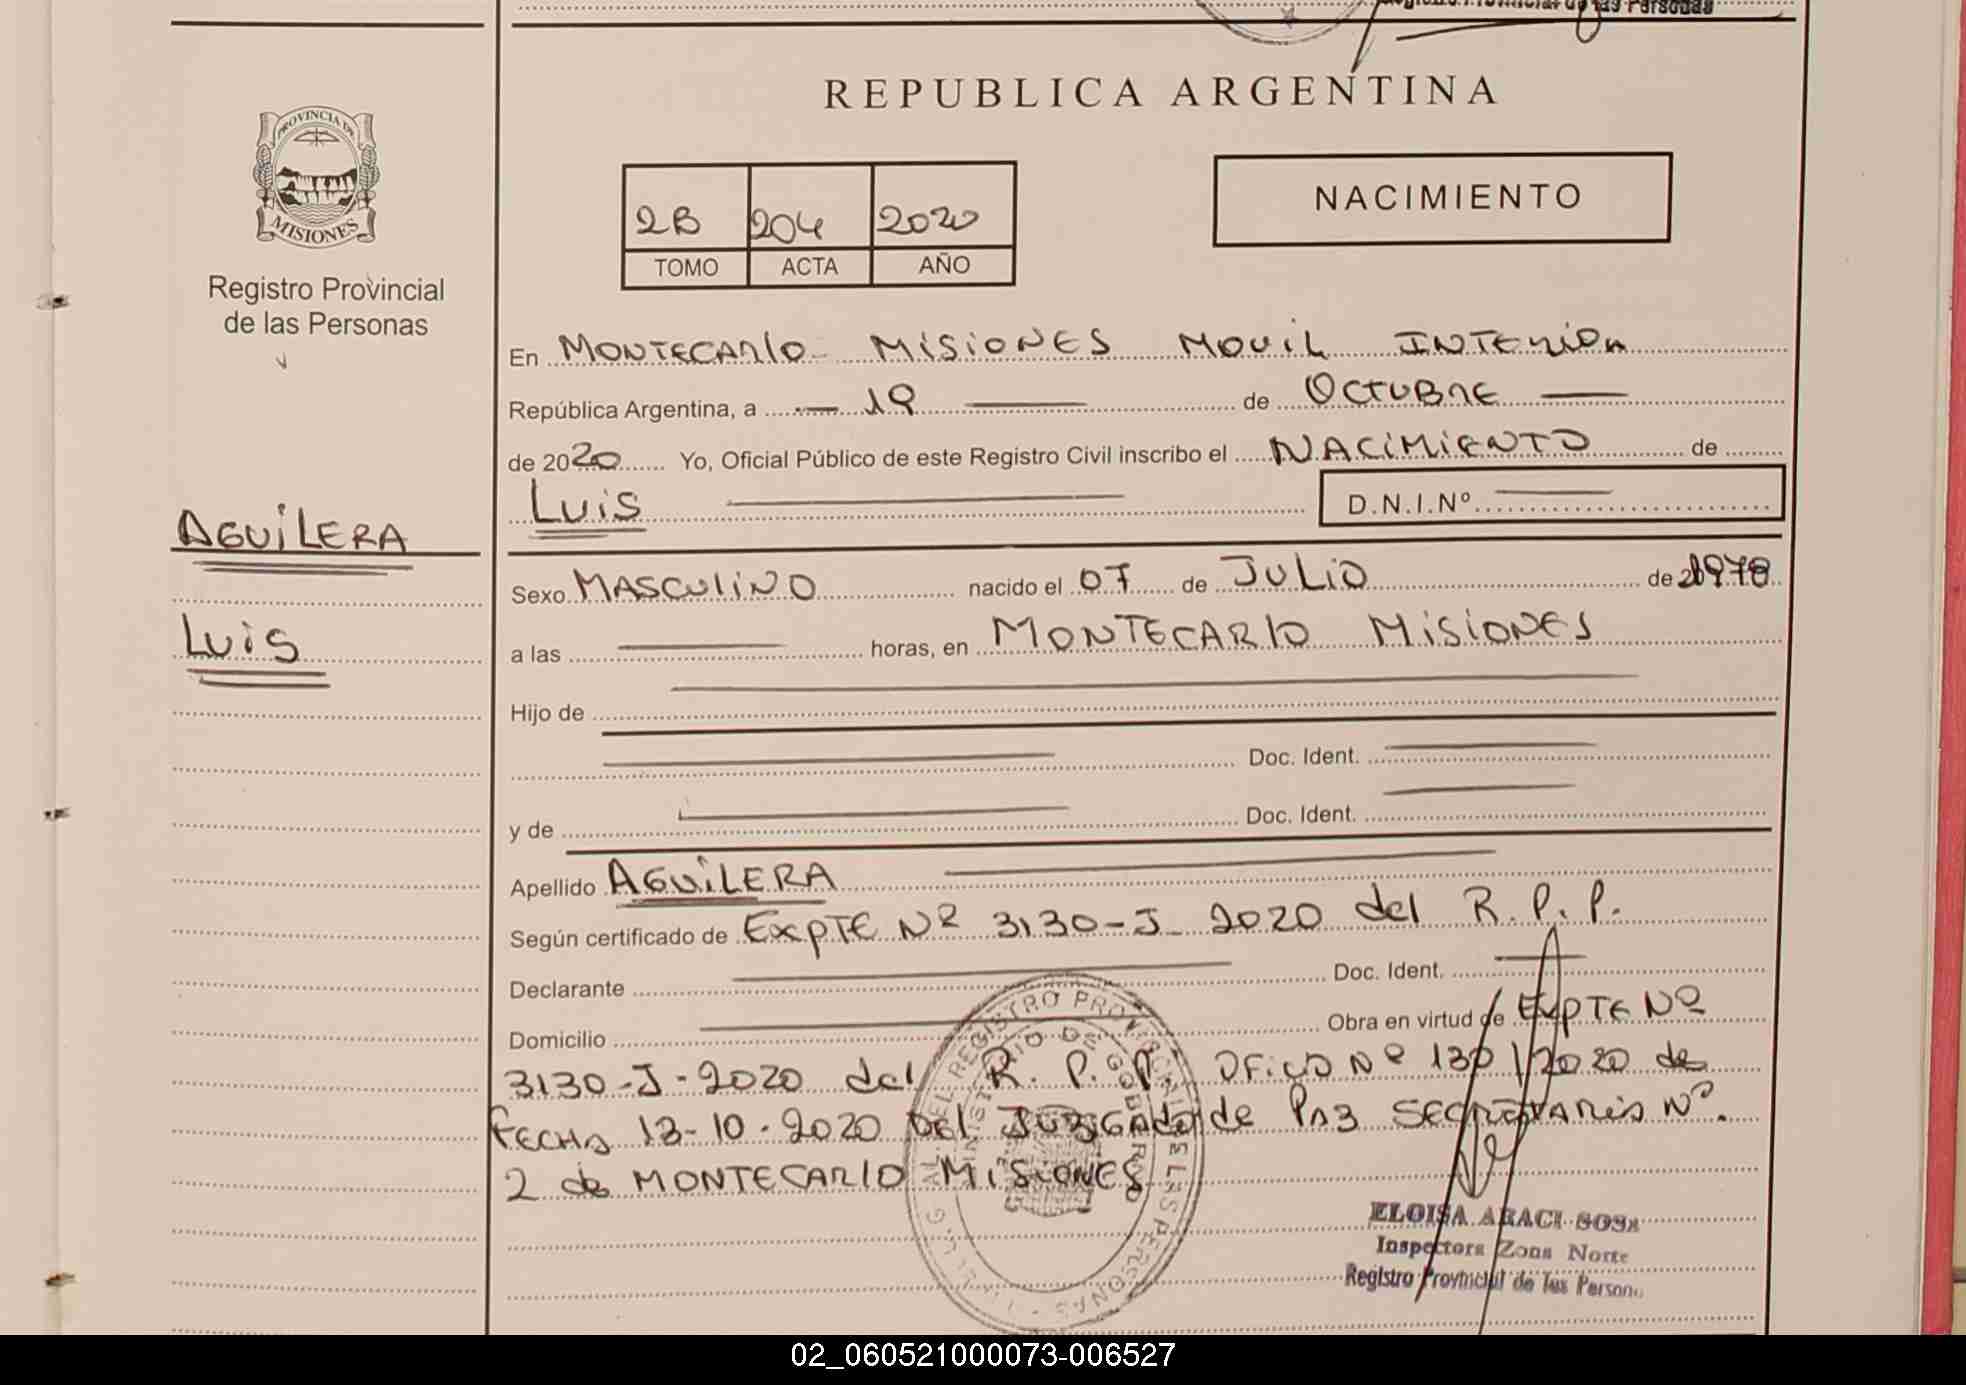 Registro Provincial de las Personas
REPUBLICA ARGENTINA
PROVINCIA DE
MISIONES
Registro Provincial
de las Personas
2B 204 2020
TOMO ACTA AÑO
NACIMIENTO
En MONTECARLO MISIONES MOVIL INTERIOR
República Argentina, a 19 de OCTUBRE
de 2020 Yo, Oficial Público de este Registro Civil inscribo el NACIMIENTO de
LUIS D.N.I.Nº
AGUILERA
LUIS
Sexo MASCULINO nacido el 07 de JULIO de 1978
a las horas, en MONTECARLO MISIONES
Hijo de
Doc. Ident.
y de Doc. Ident.
Apellido AGUILERA
Según certificado de EXPTE Nº 3130-J-2020 del R.P.P.
Declarante Doc. Ident.
Domicilio Obra en virtud de EXPTE Nº
3130-J-2020 del R.P.P. OFICIO Nº 130/2020 de
FECHA 13-10-2020 DEL JUZGADO de PAZ SECRETARIA Nº.
2 de MONTECARLO MISIONES
REGISTRO PROVINCIAL DE LAS PERSONAS
MINISTERIO DE GOBIERNO
ELOISA ARACI SOSA
Inspectora Zona Norte
Registro Provincial de las Persona
02_060521000073-006527